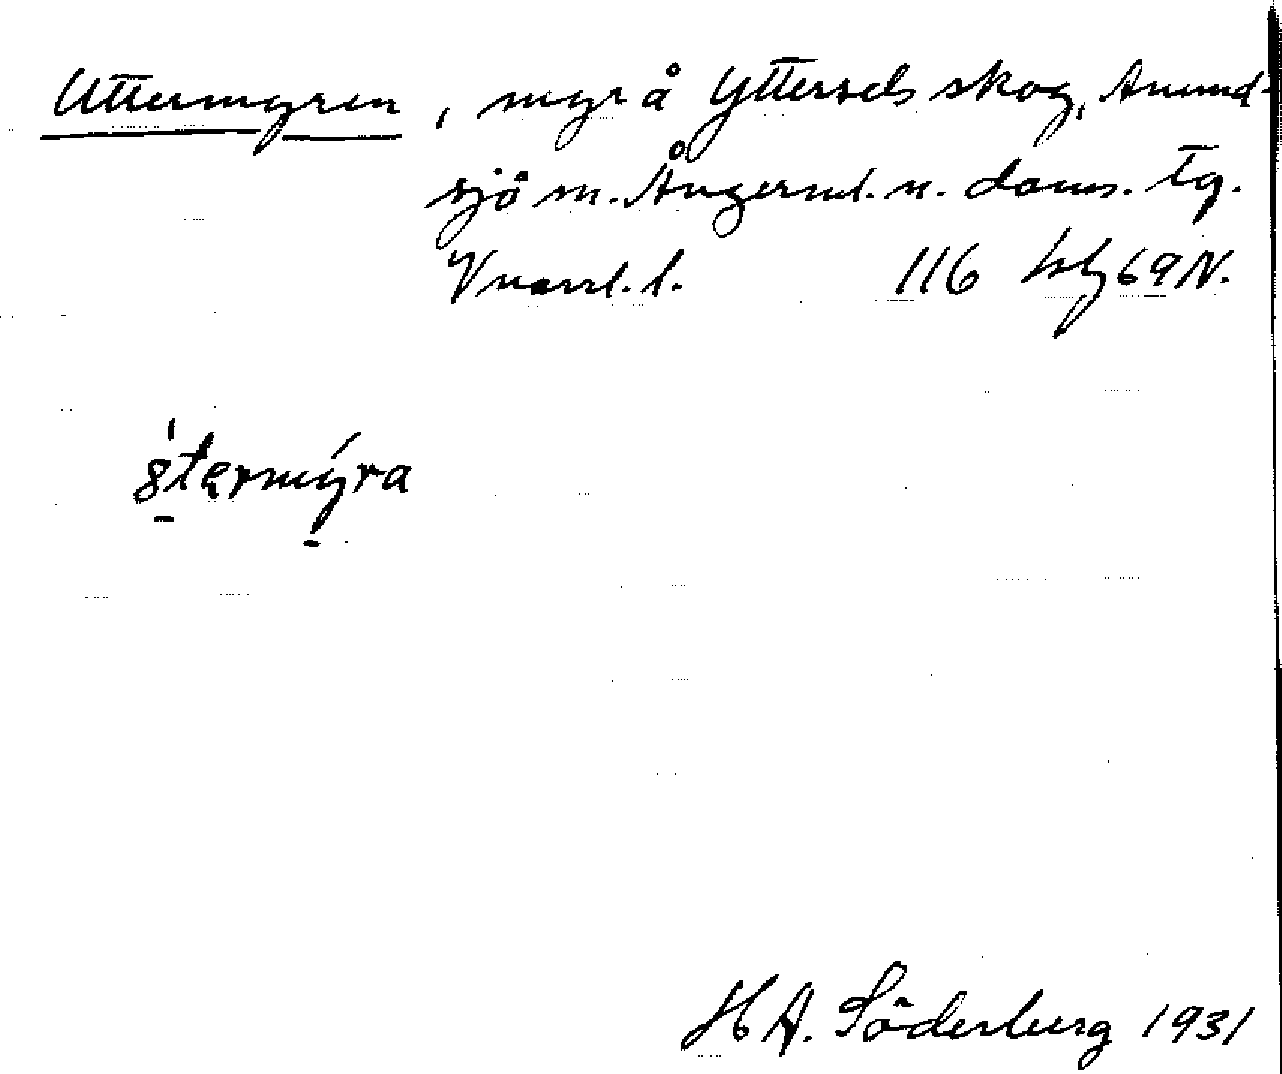 Uttermyren, myr å Yttersels skog, Anund-
sjö sn. Ångerml. n. doms. tg.
Vnorrl. l. 116 blz 69 N.
H A. Söderberg 1931